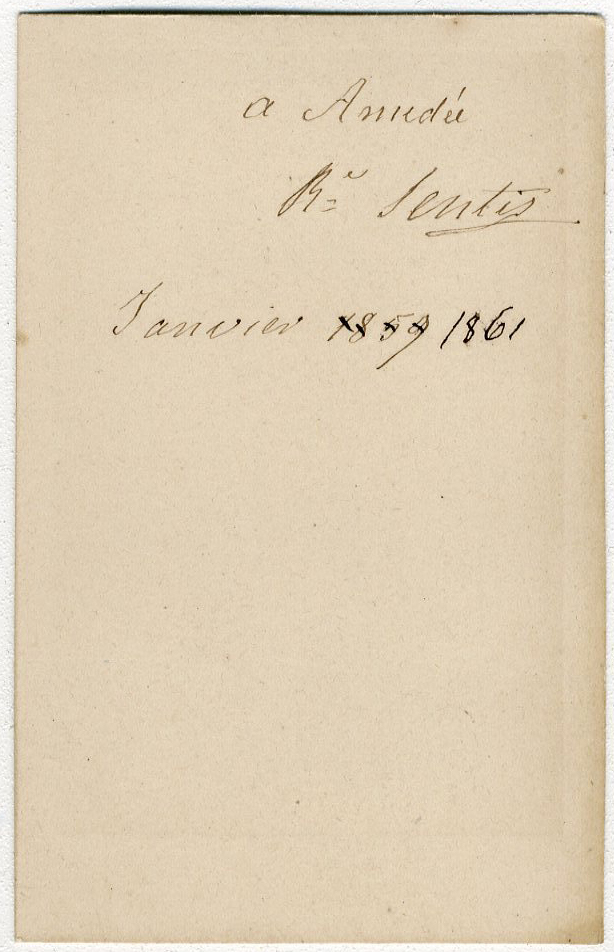 a Amedée
Re Sentis
Janvier 1859 1861